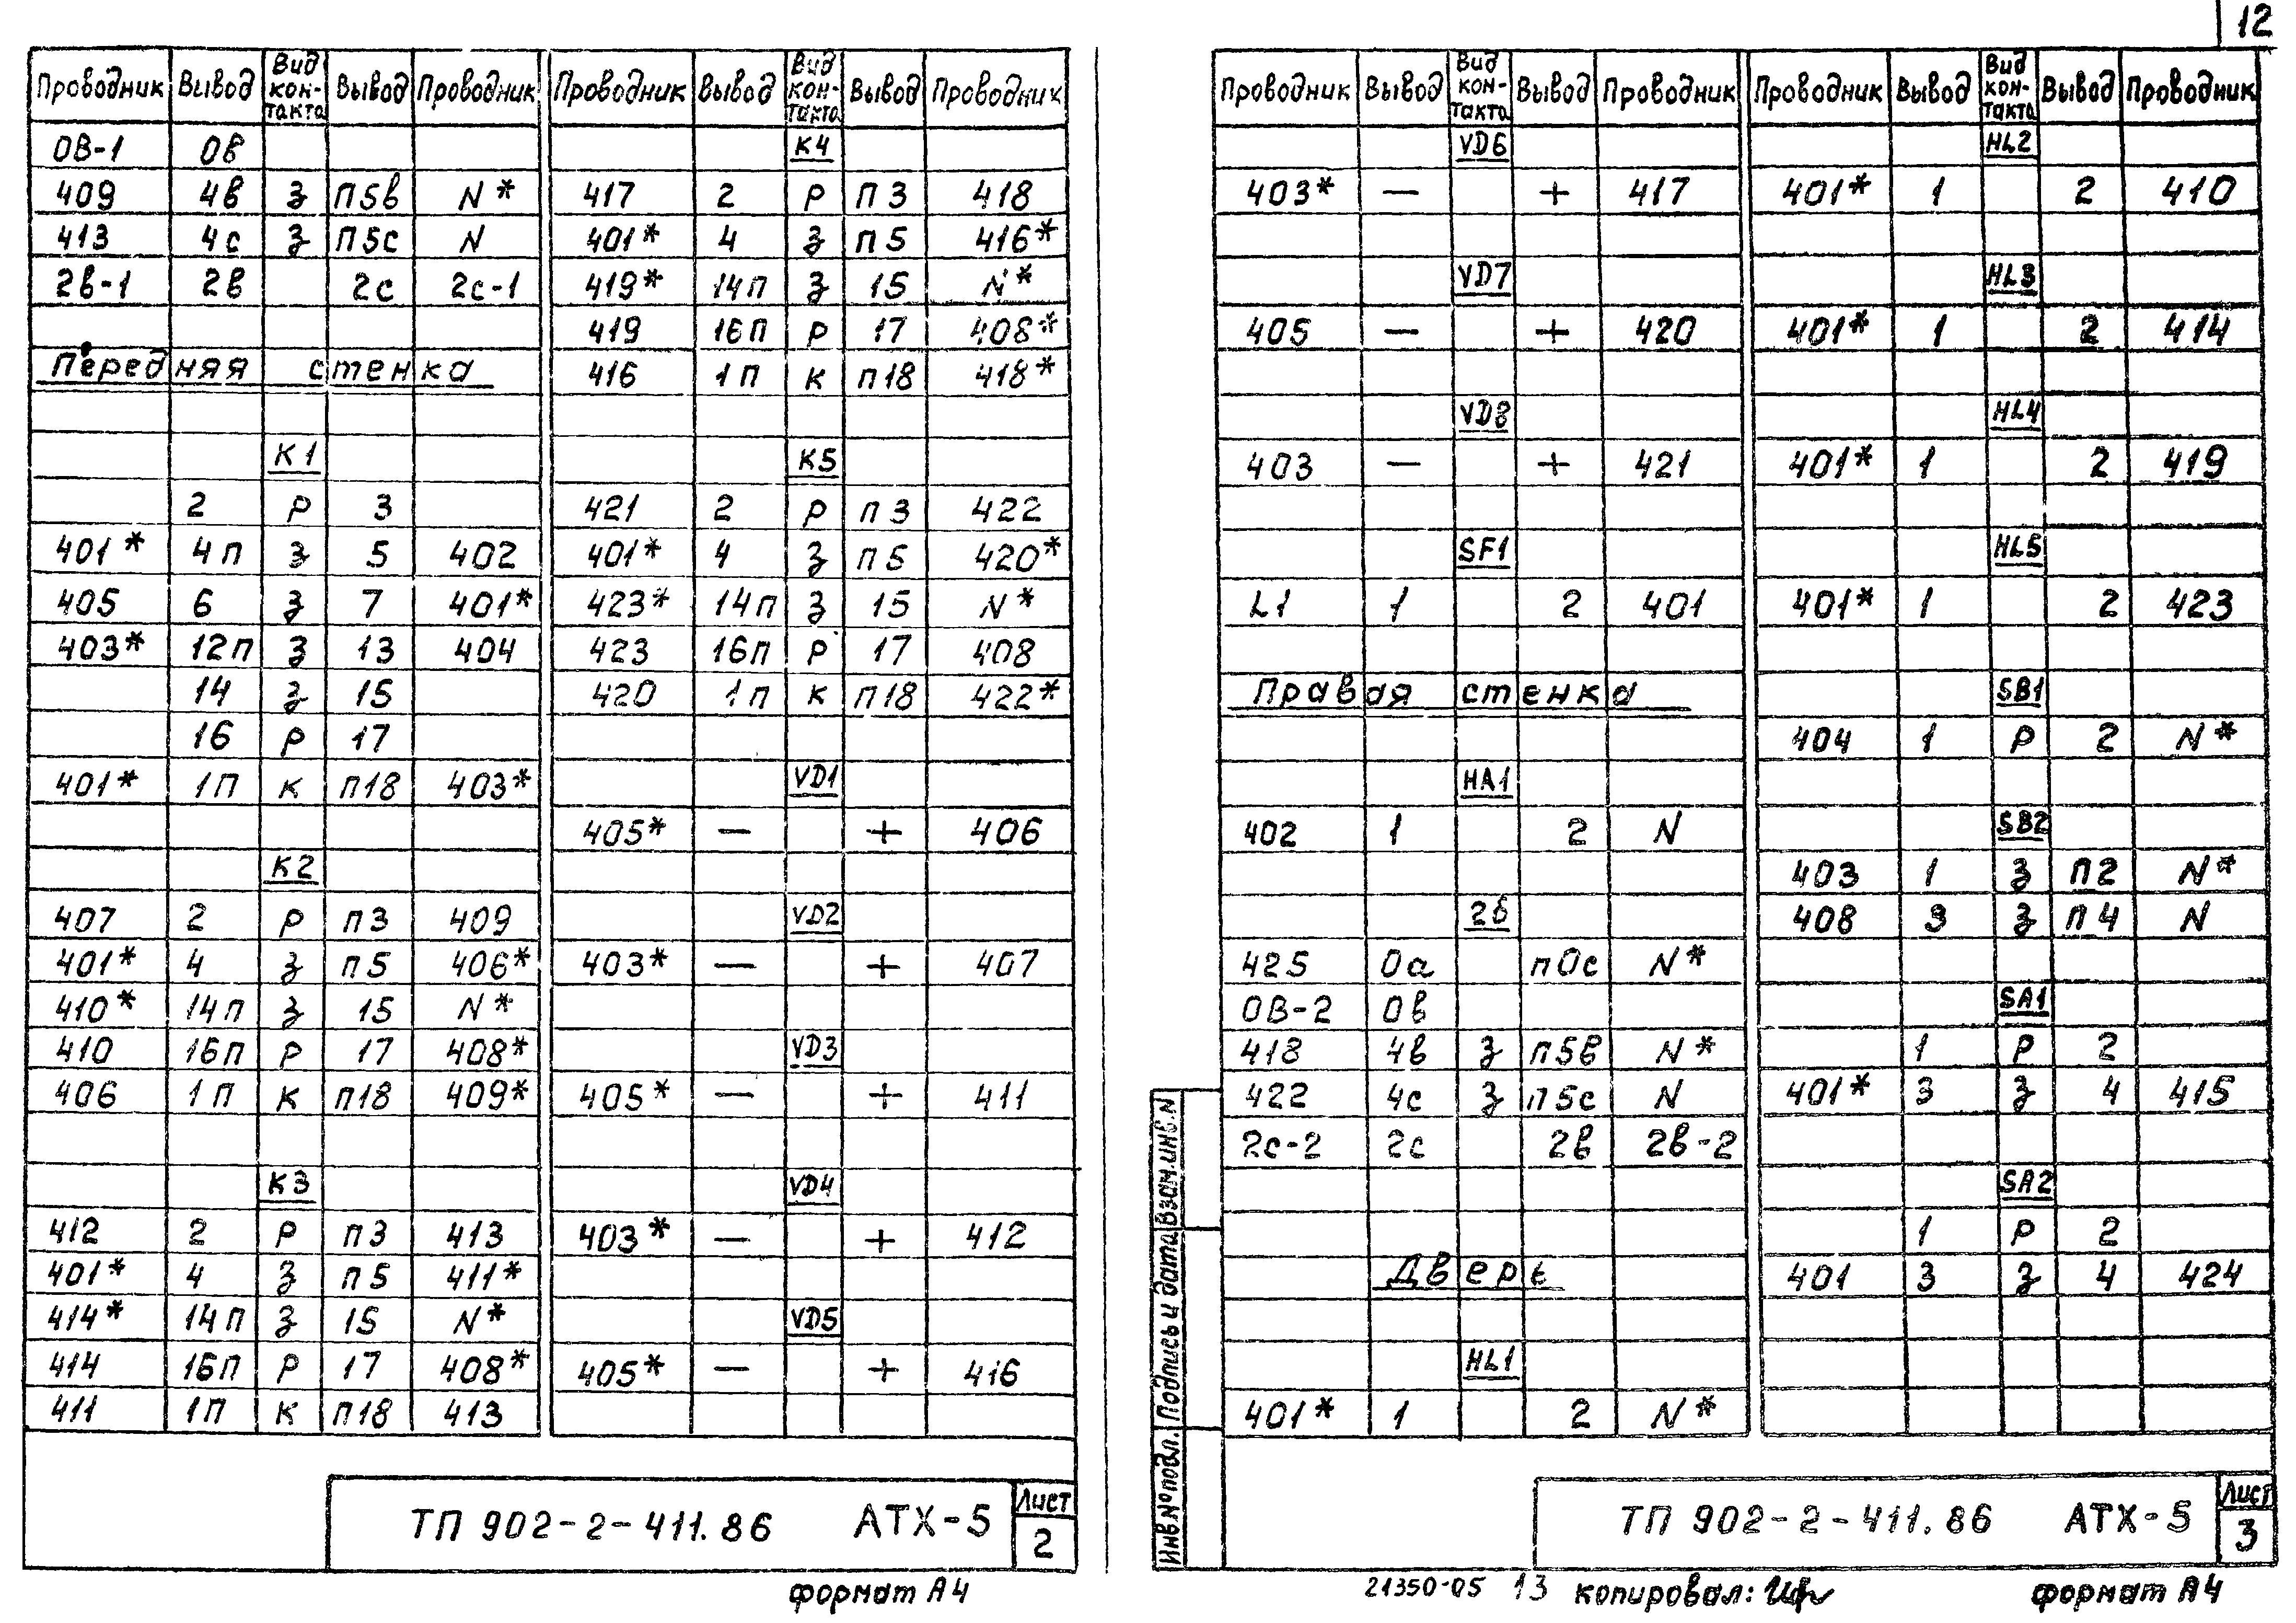 12
Проводник Вывод Вид кон-такта Вывод Проводник
ОВ-1 0в
409 4в З П5в N*
413 4с З П5с N
2в-1 2в 2с 2с-1
Передняя стенка
К1
2 Р 3
401* 4П З 5 402
405 6 З 7 401*
403* 12П З 13 404
14 З 15
16 Р 17
401* 1П К П18 403*
К2
407 2 Р П3 409
401* 4 З П5 406*
410* 14П З 15 N*
410 16П Р 17 408*
406 1П К П18 409*
К3
412 2 Р П3 413
401* 4 З П5 411*
414* 14П З 15 N*
414 16П Р 17 408*
411 1П К П18 413
Проводник Вывод Вид кон-такта Вывод Проводник
К4
417 2 Р П3 418
401* 4 З П5 416*
419* 14П З 15 N*
419 16П Р 17 408*
416 1П К П18 418*
К5
421 2 Р П3 422
401* 4 З П5 420*
423* 14П З 15 N*
423 16П Р 17 408
420 1П К П18 422*
VD1
405* — + 406
VD2
403* — + 407
VD3
405* — + 411
VD4
403* — + 412
VD5
405* — + 416
ТП 902-2-411.86 АТХ-5
Лист
2
формат А4
Проводник Вывод Вид кон-такта Вывод Проводник
VD6
403* — + 417
VD7
405 — + 420
VD8
403 — + 421
SF1
L1 1 2 401
Правая стенка
НА1
402 1 2 N
2б
425 0а п0с N*
ОВ-2 0в
418 4в З п5в N*
422 4с З п5с N
2с-2 2с 2в 2в-2
Дверь
HL1
401* 1 2 N*
Проводник Вывод Вид кон-такта Вывод Проводник
HL2
401* 1 2 410
HL3
401* 1 2 414
HL4
401* 1 2 419
HL5
401* 1 2 423
SB1
404 1 Р 2 N*
SB2
403 1 З П2 N*
408 3 З П4 N
SA1
1 Р 2
401* 3 З 4 415
SA2
1 Р 2
401 3 З 4 424
Инв.№подл. Подпись и дата Взам.инв.N
ТП 902-2-411.86 АТХ-5
Лист
3
21350-05 13 копировал: формат А4